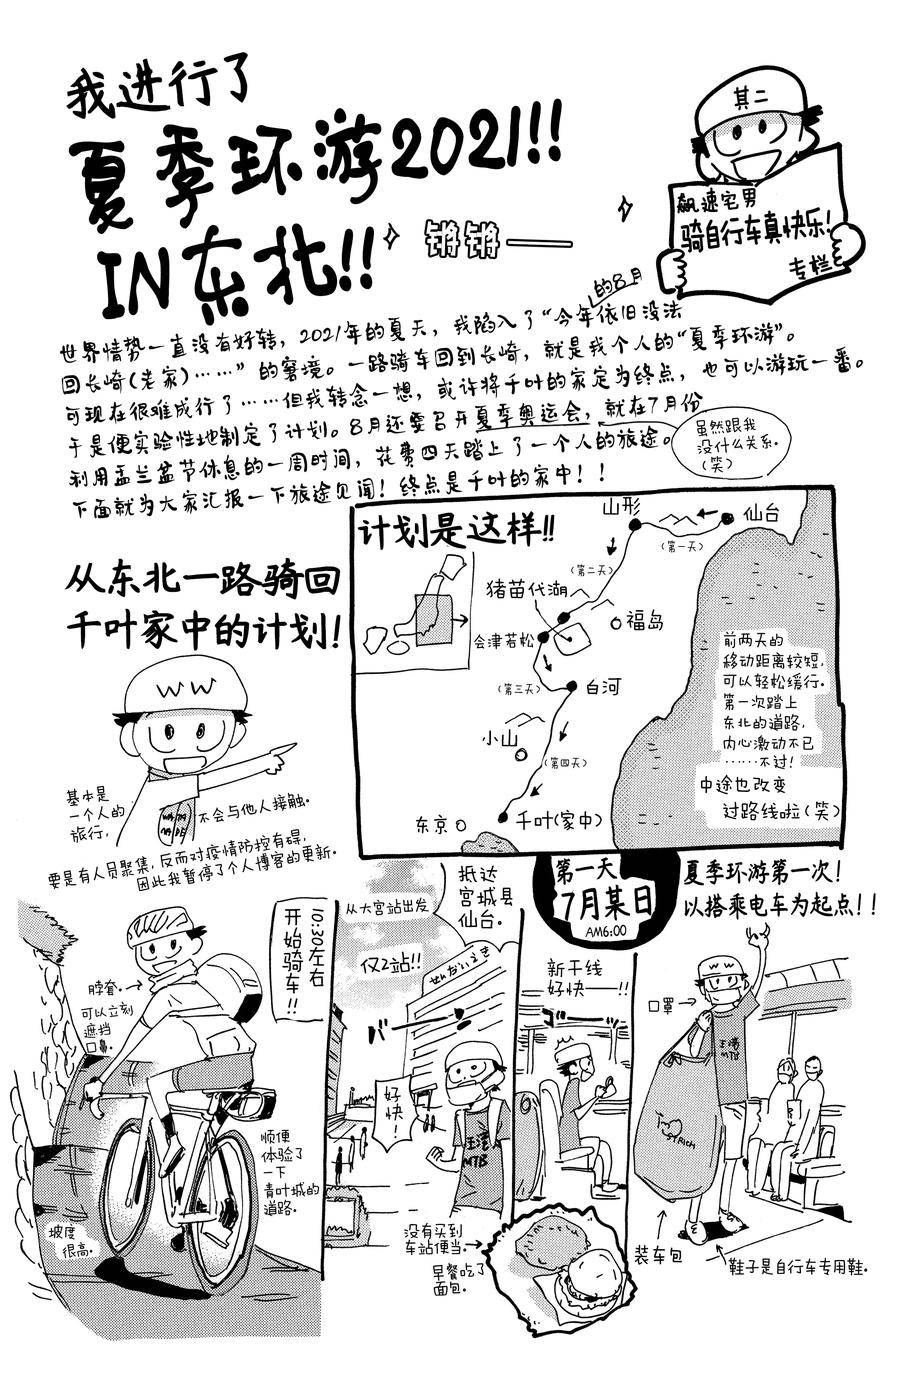 我进行了
夏季环游2021!!
IN东北!!
锵锵——
其二
飙速宅男
骑自行车真快乐!
专栏
世界情势一直没有好转，2021年的夏天，我陷入了“今年的8月依旧没法
回长崎(老家)……”的窘境。一路骑车回到长崎，就是我个人的“夏季环游”。
可现在很难成行了……但我转念一想，或许将千叶的家定为终点，也可以游玩一番。
于是便实验性地制定了计划。8月还要召开夏季奥运会，就在7月份
利用盂兰盆节休息的一周时间，花费四天踏上了一个人的旅途。
下面就为大家汇报一下旅途见闻！终点是千叶的家中！！
虽然跟我
没什么关系.
(笑)
从东北一路骑回
千叶家中的计划!
WW
基本是
一个人的
旅行,
不会与他人接触.
要是有人员聚集,反而对疫情防控有碍,
因此我暂停了个人博客的更新.
计划是这样!!
山形
仙台
(第一天)
(第二天)
猪苗代湖
福岛
会津若松
(第三天)
白河
小山
(第四天)
东京
千叶(家中)
前两天的
移动距离较短,
可以轻松缓行.
第一次踏上
东北的道路,
内心激动不已
……不过!
中途也改变
过路线啦(笑)
第一天
7月某日
AM6:00
夏季环游第一次!
以搭乘电车为起点!!
WW
口罩
玉湾
MTB
I
STRICH
装车包
鞋子是自行车专用鞋.
新干线
好快——!!
ゴーッ
抵达
宮城县
仙台.
从大宫站出发
仅2站!!
せんだいえき
バーーン
好快!
MTB
没有买到
车站便当.
早餐吃了
面包.
10:30左右
开始骑车!!
脖脊.
可以立刻
遮挡
口鼻.
顺便
体验了
一下
青叶城的
道路.
坡度
很高.